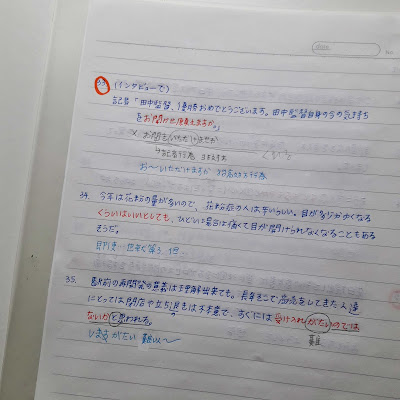 date
33 (インタビューで)
記者「田中監督、優勝おめでとうございます。田中監督自身の今の気持ち
をお聞かせ願えますか。」
× お聞き
記者行為
お〜いただけますか 対方的行為
34. 今年は花粉の量が多いので、花粉症の人は辛いらしい。目が少しかゆくなる
くらいはいいとしても、ひどい場合は痛くて目が開けられなくなることもある
そうだ。
35. 駅前の再開発の意義は理解出来ても、長年ここで商売をしてきた人達
にとっては閉店や立ち退きは不本意で、すぐには受け入れがたいのでは
ないかと思われる。
しまうがたい 難以〜
難